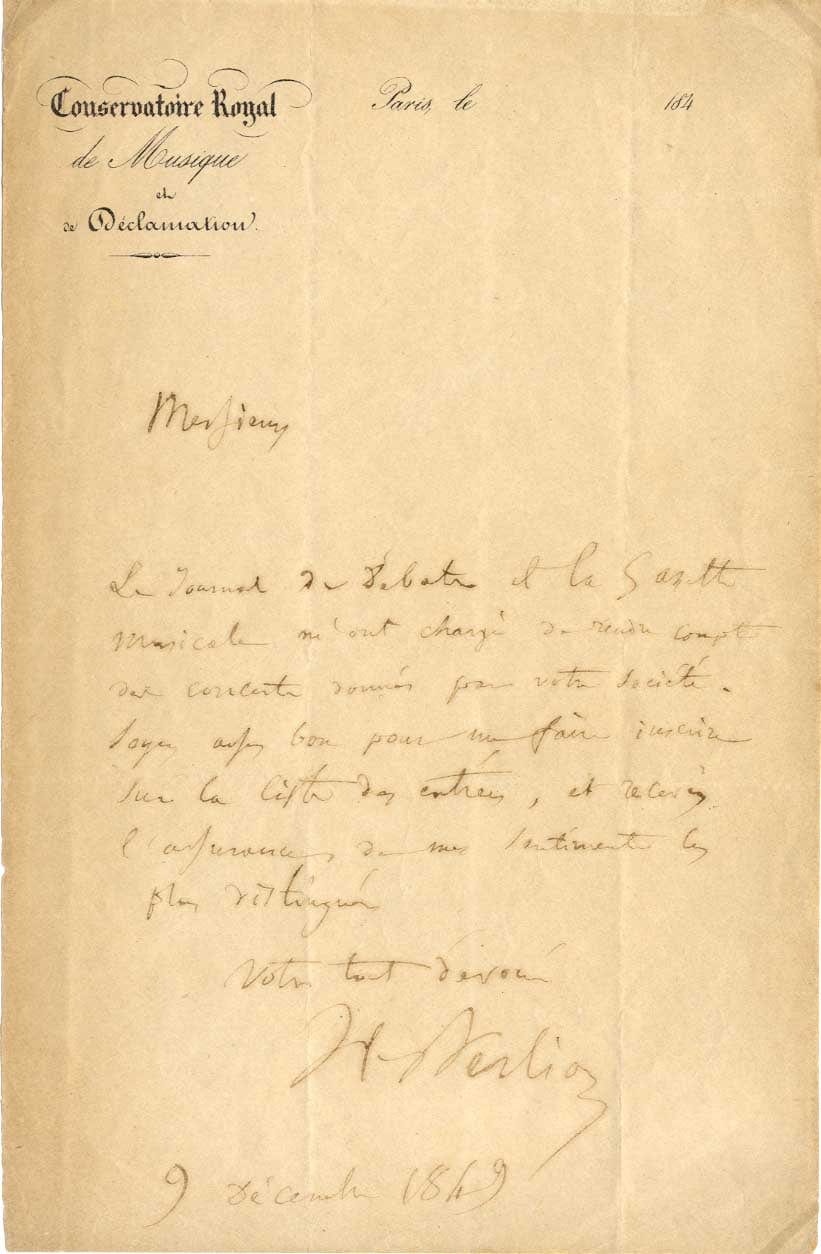 Conservatoire Royal
de Musique
et
de Déclamation.
Paris, le 184
Messieurs
Le Journal des Débats et la Gazette
musicale m'ont chargé de rendre compte
des concerts donnés par votre société.
Soyez assez bon pour me faire inscrire
sur la liste des entrées, et recevez
l'assurance de mes sentiments les
plus distingués
Votre tout dévoué
H. Berlioz
9 Décembre 1849